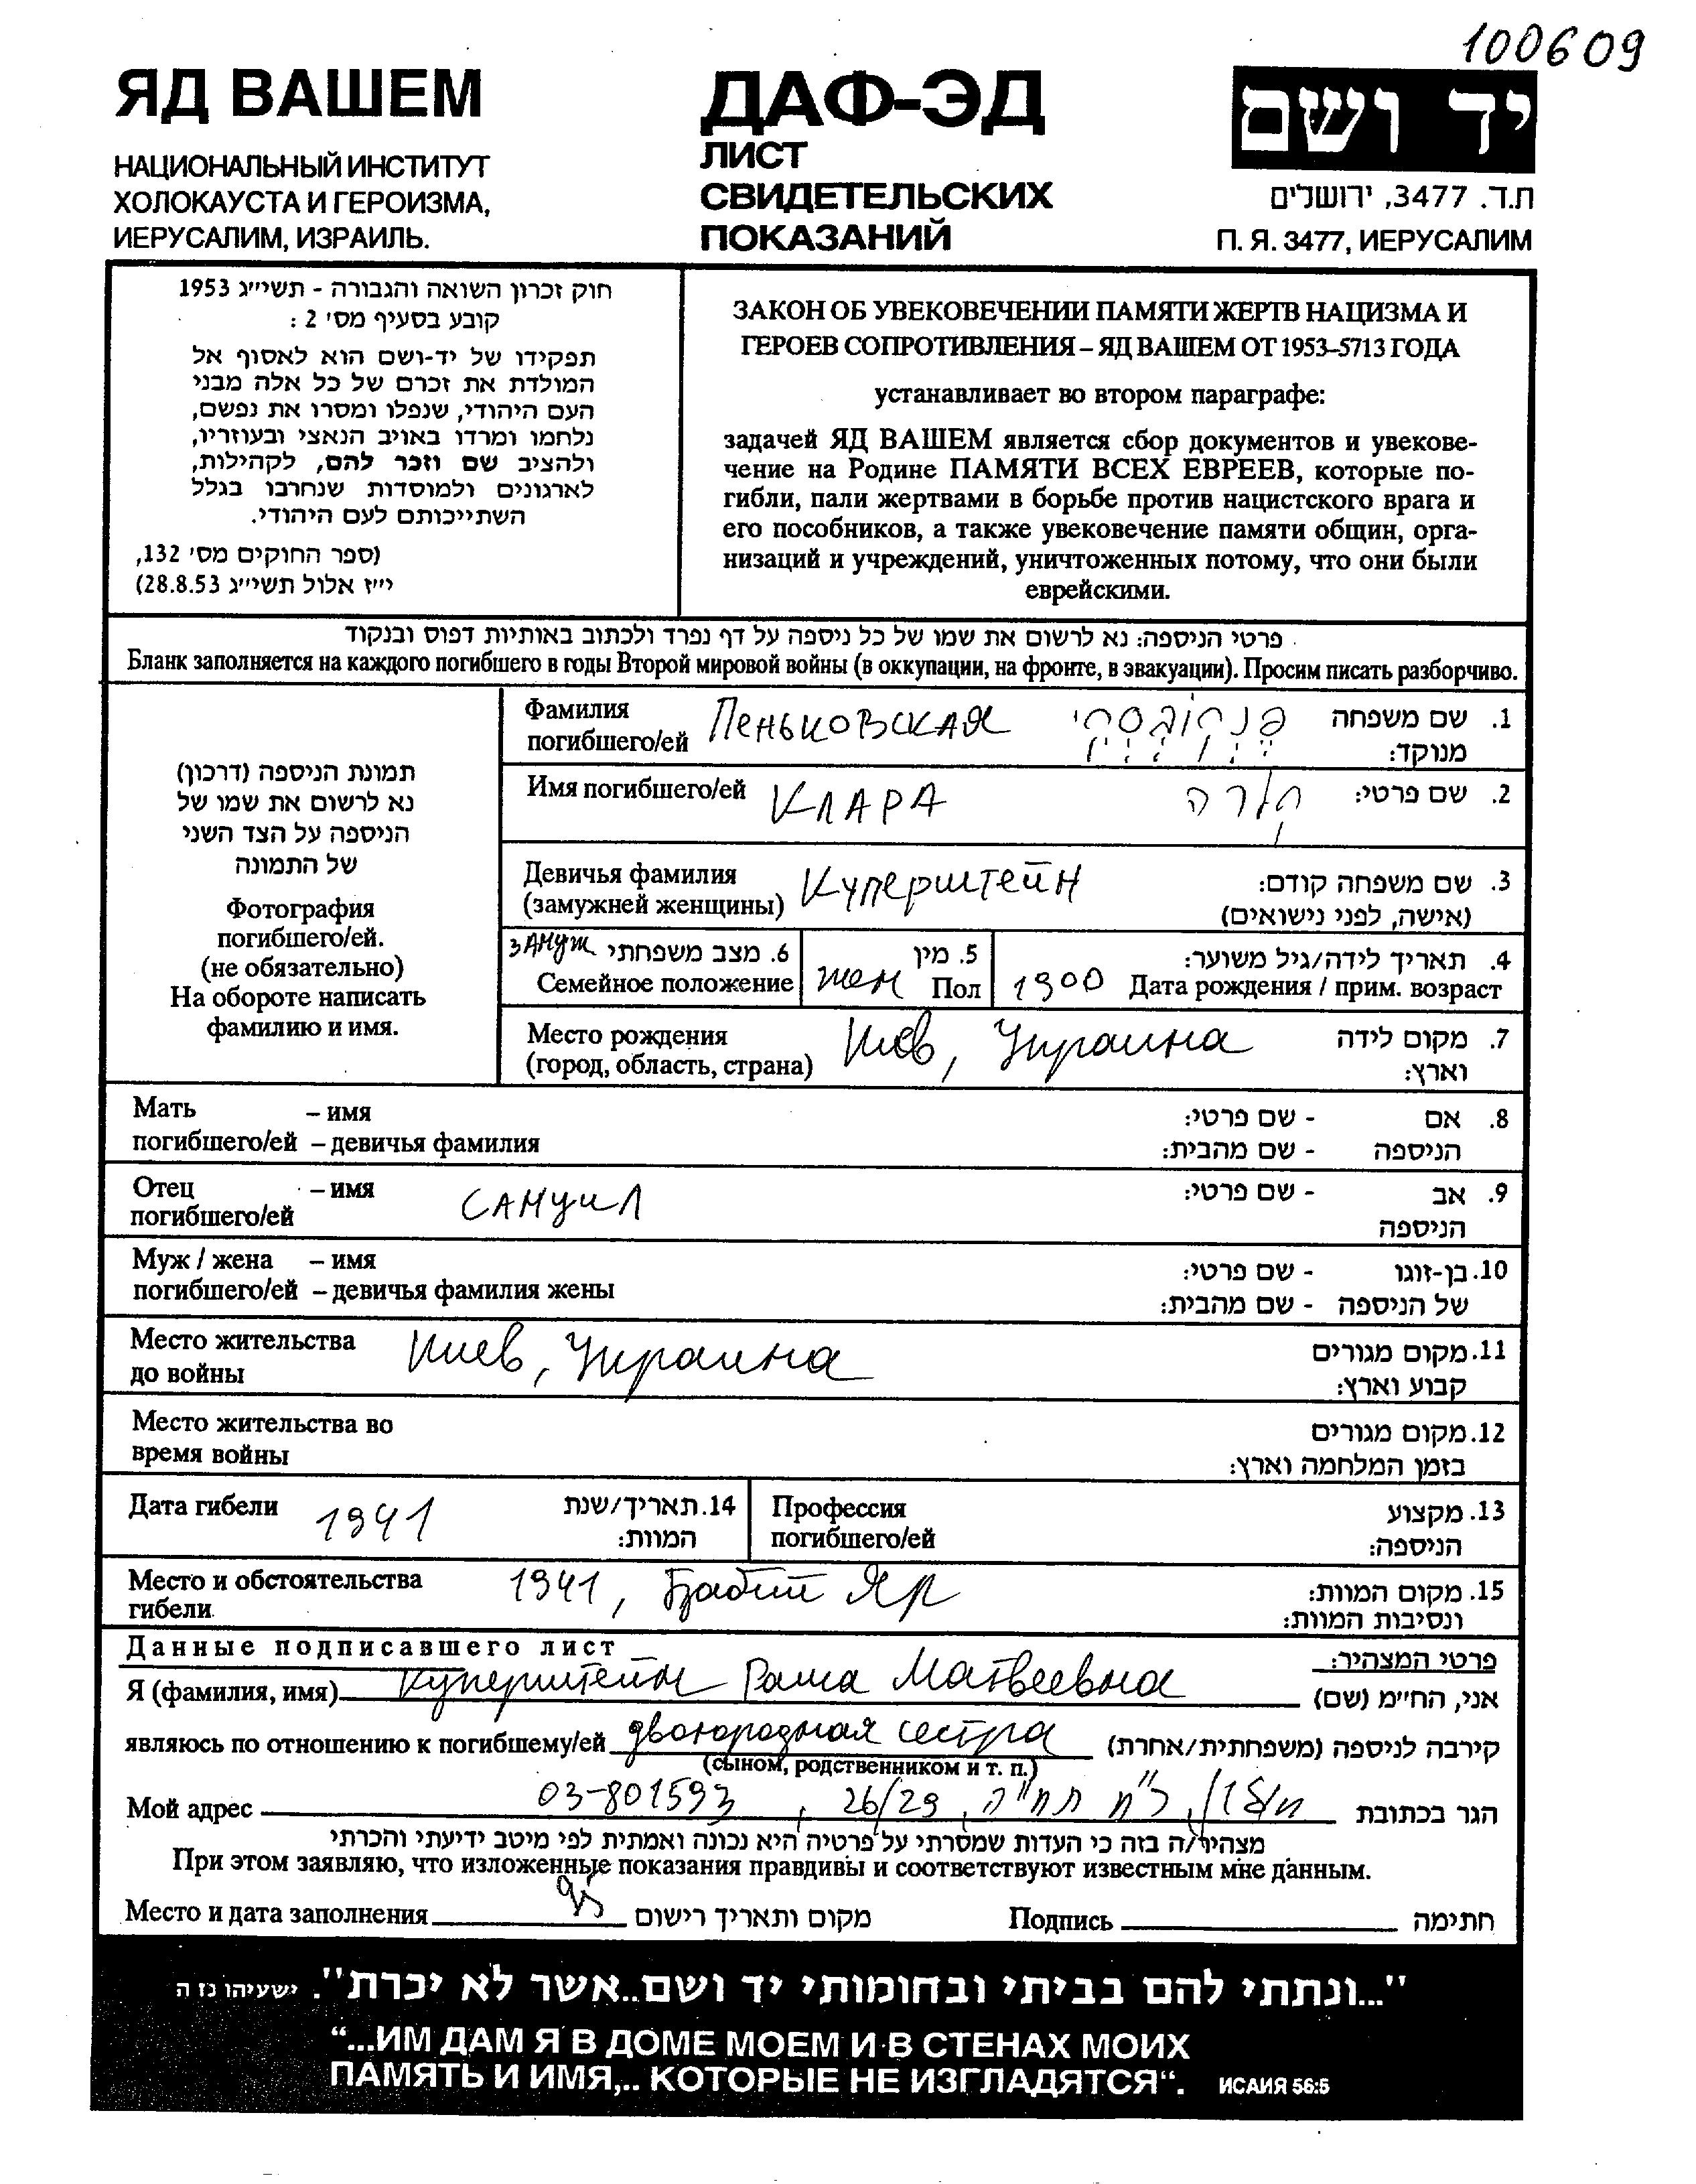 100609
ЯД ВАШЕМ
НАЦИОНАЛЬНЫЙ ИНСТИТУТ
ХОЛОКАУСТА И ГЕРОИЗМА,
ИЕРУСАЛИМ, ИЗРАИЛЬ.
ДАФ-ЭД
ЛИСТ
СВИДЕТЕЛЬСКИХ
ПОКАЗАНИЙ
יד ושם
ת.ד. 3477, ירושלים
П. Я. 3477, ИЕРУСАЛИМ
חוק זכרון השואה והגבורה - תשי״ג 1953
קובע בסעיף מס׳ 2 :
תפקידו של יד-ושם הוא לאסוף אל
המולדת את זכרם של כל אלה מבני
העם היהודי, שנפלו ומסרו את נפשם,
נלחמו ומרדו באויב הנאצי ובעוזריו,
ולהציב שם וזכר להם, לקהילות,
לארגונים ולמוסדות שנחרבו בגלל
השתייכותם לעם היהודי.
(ספר החוקים מס׳ 132,
י״ז אלול תשי״ג 28.8.53)
ЗАКОН ОБ УВЕКОВЕЧЕНИИ ПАМЯТИ ЖЕРТВ НАЦИЗМА И
ГЕРОЕВ СОПРОТИВЛЕНИЯ – ЯД ВАШЕМ ОТ 1953–5713 ГОДА
устанавливает во втором параграфе:
задачей ЯД ВАШЕМ является сбор документов и увекове-
чение на Родине ПАМЯТИ ВСЕХ ЕВРЕЕВ, которые по-
гибли, пали жертвами в борьбе против нацистского врага и
его пособников, а также увековечение памяти общин, орга-
низаций и учреждений, уничтоженных потому, что они были
еврейскими.
פרטי הניספה: נא לרשום את שמו של כל ניספה על דף נפרד ולכתוב באותיות דפוס ובנקוד
Бланк заполняется на каждого погибшего в годы Второй мировой войны (в оккупации, на фронте, в эвакуации). Просим писать разборчиво.
תמונת הניספה (דרכון)
נא לרשום את שמו של
הניספה על הצד השני
של התמונה
Фотография
погибшего/ей.
(не обязательно)
На обороте написать
фамилию и имя.
Фамилия погибшего/ей Пеньковская פנקובסקי 1. שם משפחה מנוקד:
Имя погибшего/ей КЛАРА קלרה 2. שם פרטי:
Девичья фамилия (замужней женщины) Куперштейн 3. שם משפחה קודם: (אישה, לפני נישואים)
замуж 6. מצב משפחתי Семейное положение жен 5. מין Пол 1900 4. תאריך לידה/גיל משוער: Дата рождения / прим. возраст
Место рождения (город, область, страна) Киев, Украина 7. מקום לידה וארץ:
Мать – имя 8. אם - שם פרטי:
погибшего/ей – девичья фамилия הניספה - שם מהבית:
Отец – имя САМУИЛ 9. אב - שם פרטי:
погибшего/ей הניספה
Муж / жена – имя 10. בן-זוגו - שם פרטי:
погибшего/ей – девичья фамилия жены של הניספה - שם מהבית:
Место жительства до войны Киев, Украина 11. מקום מגורים קבוע וארץ:
Место жительства во время войны 12. מקום מגורים בזמן המלחמה וארץ:
Дата гибели 1941 14. תאריך/שנת המוות: Профессия погибшего/ей 13. מקצוע הניספה:
Место и обстоятельства гибели 1941, Бабий Яр 15. מקום המוות: ונסיבות המוות:
Данные подписавшего лист פרטי המצהיר:
Я (фамилия, имя) Куперштейн Раиса Матвеевна אני, הח״מ (שם)
являюсь по отношению к погибшему/ей двоюродная сестра קירבה לניספה (משפחתית/אחרת)
(сыном, родственником и т. п.)
Мой адрес 03-801593, 26/29, הגר בכתובת
מצהיר/ה בזה כי העדות שמסרתי על פרטיה היא נכונה ואמתית לפי מיטב ידיעתי והכרתי
При этом заявляю, что изложенные показания правдивы и соответствуют известным мне данным.
Место и дата заполнения 95 מקום ותאריך רישום Подпись חתימה
"...ונתתי להם בביתי ובחומותי יד ושם..אשר לא יכרת". ישעיהו נז ה
“...ИМ ДАМ Я В ДОМЕ МОЕМ И В СТЕНАХ МОИХ
ПАМЯТЬ И ИМЯ,.. КОТОРЫЕ НЕ ИЗГЛАДЯТСЯ“. ИСАИЯ 56:5